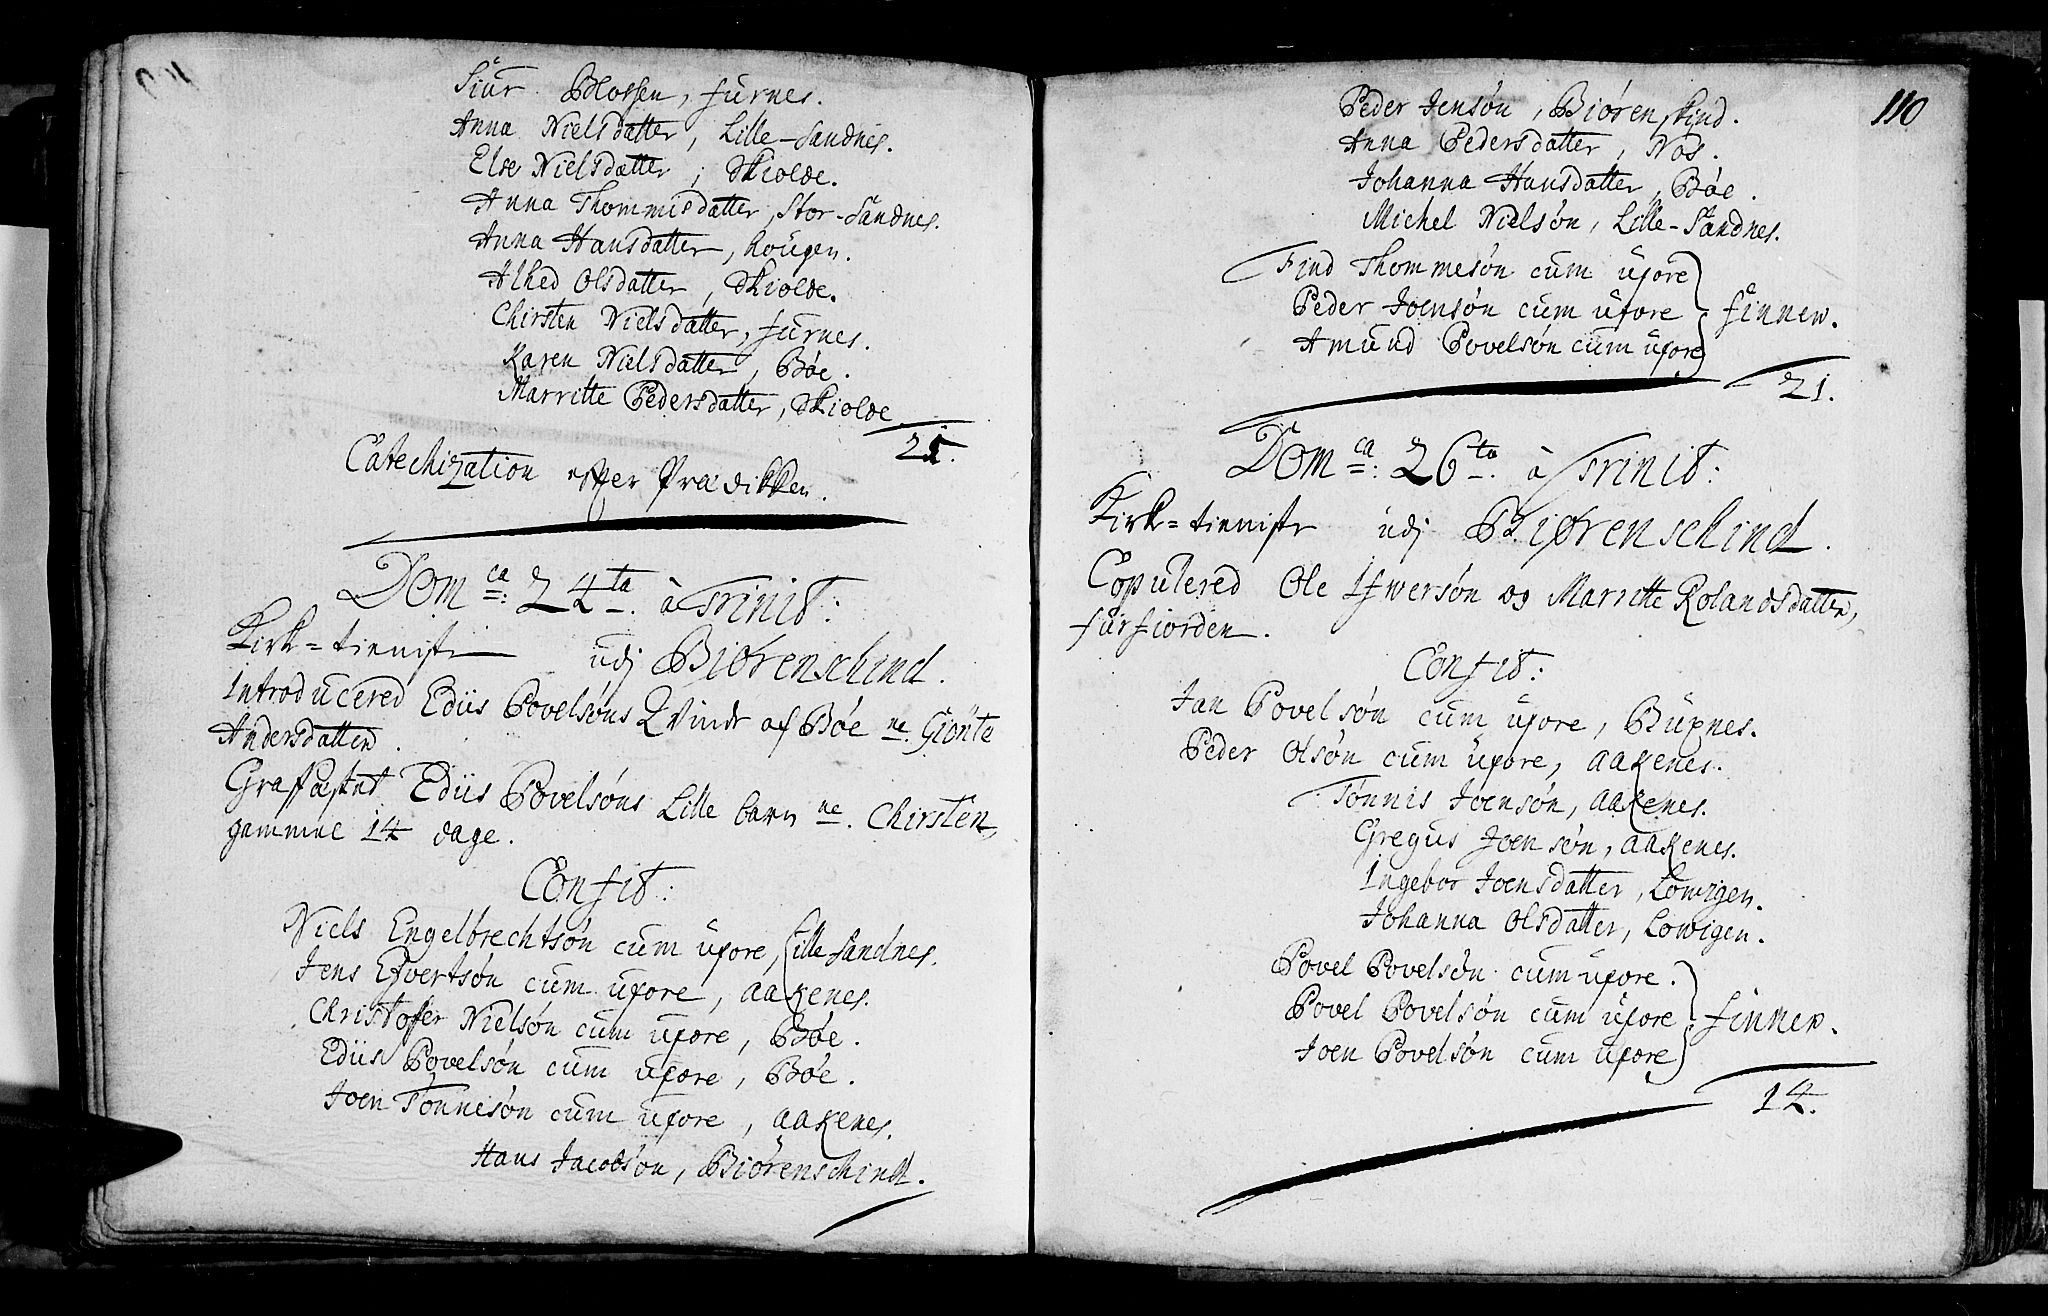 Siur Blossen, furnes.
Anna Nielsdatter, Lille-Sandnes.
Else Nielsdatter, Skiolde.
Anna Thommisdatter, Stor-Sandnes.
Anna Hansdatter, hougen.
Alhed Olsdatter, Skiolde.
Chirsten Nielsdatter, furnes.
Karen Nielsdatter, Bøe.
Marritte Pedersdatter, Skiolde
21.
Catechization efter Prædikken.
Dom ca: 24ta. à Trinit:
Kirk=tieniste udj Biørenschind.
Introducered Ediis Povelsøns Qvinde af Bøe ne. Giønte
Andersdatter.
Graffæstet Ediis Povelsøns Lille barn ne. Chirsten,
gammel 14 dage.
Confit:
Niels Engelbrechtsøn cum uxore, Lille Sandnes.
Jens Efvertsøn cum uxore, aakenes.
Christofer Nielsøn cum uxore, Bøe.
Ediis Povelsøn cum uxore, Bøe.
Joen Tønnesøn cum uxore, aakenes.
Hans Jacobsøn, Biørenschind.
110
Peder Jensøn, Biørenskind.
Anna Pedersdatter, Nos.
Johanna Hansdatter, Bøe.
Michel Nielsøn, Lille-Sandnes.
Find Thommesøn cum uxore
Peder Joensøn cum uxore finner.
Amund Povelsøn cum uxore
21.
Dom ca: 26ta. à Trinit:
Kirk=tieniste udj Biørenschind.
Copulered Ole Ifwersøn og Marritte Rolandsdatter,
furfiorden.
Confit:
Jan Povelsøn cum uxore, Buxnes.
Peder Olsøn cum uxore, aakenes.
Tønnis Joensøn, aakenes.
Gregus Joensøn, aakenes.
Ingebor Joensdatter, Lowigen.
Johanna Olsdatter, Lowigen.
Povel Povelsøn cum uxore.
Povel Povelsøn cum uxore finner.
Joen Povelsøn cum uxore
14.